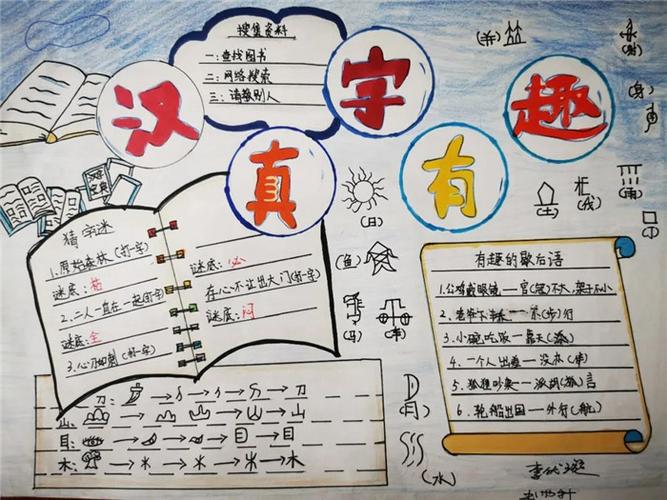 汉字真有趣
搜集资料
一:查找图书
二:网络搜索
三:请教别人
猜字迷
1.原始森林(打一字)
谜底:枯
2.二人一直在一起(打一字)
谜底:全
3.心刀如刺(打一字)
谜底:必
存心不让出大门(打一字)
谜底:闷
刀:
刀
山:
山
目:
目
木:
木
(日)
(鱼)
(马)
(月)
(水)
(土)
(戍)
(雨)
(身)
有趣的歇后语
1.公鸡戴眼镜一官(冠)不大,架子不小
3.小碗吃饭一靠天(添)
4.一个人出差一没办(伴)
5.狐狸吵架一派胡(狐)言
6.轮船出国一外行(航)